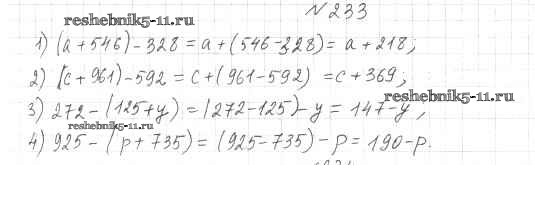 № 233
reshebnik5-11.ru
1) (a + 546) - 328 = a + (546 - 328) = a + 218;
2) (c + 961) - 592 = c + (961 - 592) = c + 369;
3) 272 - (125 + y) = (272 - 125) - y = 147 - y;
reshebnik5-11.ru
reshebnik5-11.ru
4) 925 - (p + 735) = (925 - 735) - p = 190 - p.